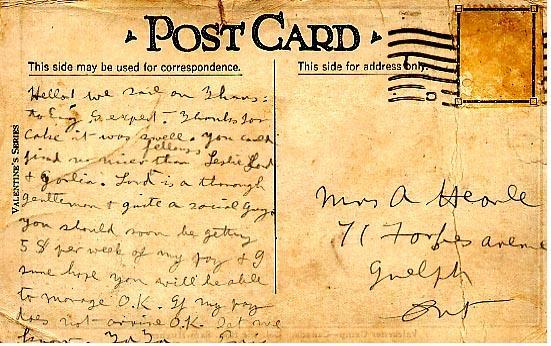 POST CARD
This side may be used for correspondence.
This side for address only.
VALENTINE'S SERIES
Hello! we sail on Thurs:
to Eng I expect. Thanks for
cake it was swell. You could
find no nicer fellows than Leslie Lord
& Gordon. Lord is a thorough
gentlemen & quite a social Guy.
you should soon be getting
5 $ per week of my pay & I
sure hope you will be able
to manage O.K. If my pay
does not arrive O.K. Let me
know.
Mrs A Hearle
71 Forbes avenue
Guelph
Ont